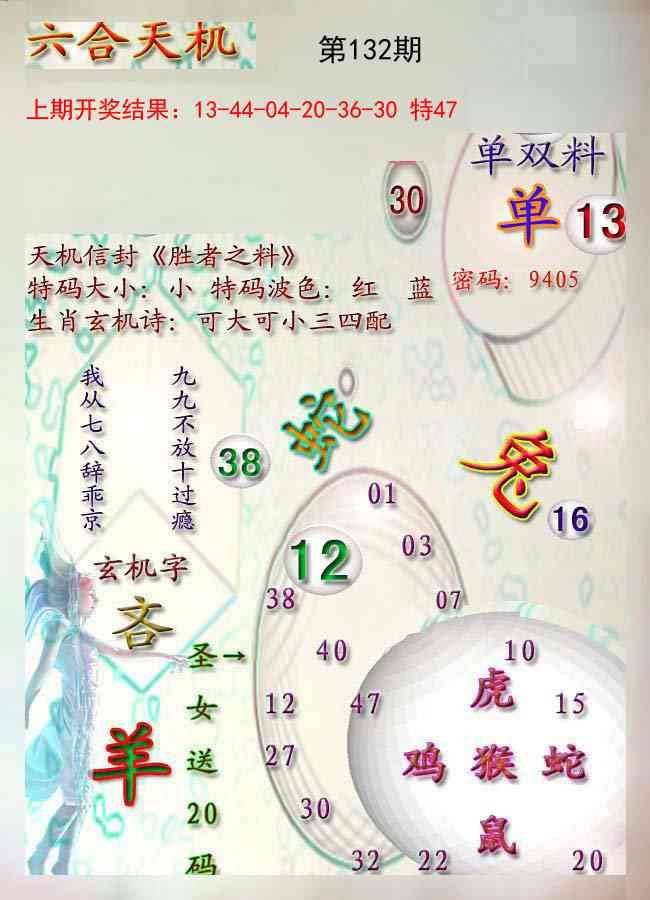 六合天机
第132期
上期开奖结果：13-44-04-20-36-30 特47
单双料
30
单 13
天机信封《胜者之料》
特码大小：小 特码波色：红 蓝
密码：9405
生肖玄机诗：可大可小三四配
我从七八辞乖京
九九不放十过瘾
38
蛇
兔
16
玄机字
吝
羊
圣→
女
送
20
码
12
01
03
38
07
40
10
12
47
15
27
30
32
22
20
虎
鸡 猴 蛇
鼠